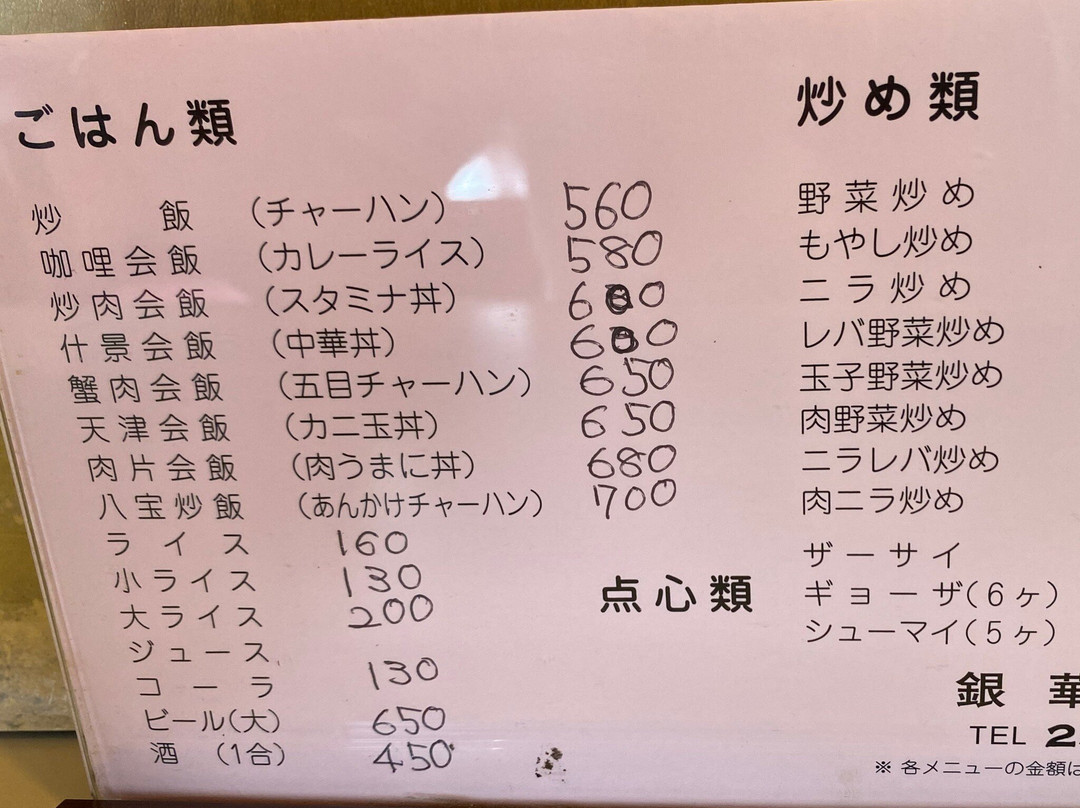 ごはん類
炒飯 (チャーハン) 560
咖哩会飯 (カレーライス) 580
炒肉会飯 (スタミナ丼) 600
什景会飯 (中華丼) 600
蟹肉会飯 (五目チャーハン) 650
天津会飯 (カニ玉丼) 650
肉片会飯 (肉うまに丼) 680
八宝炒飯 (あんかけチャーハン) 700
ライス 160
小ライス 130
大ライス 200
ジュース
コーラ 130
ビール(大) 650
酒 (1合) 450
炒め類
野菜炒め
もやし炒め
ニラ炒め
レバ野菜炒め
玉子野菜炒め
肉野菜炒め
ニラレバ炒め
肉ニラ炒め
点心類
ザーサイ
ギョーザ(6ヶ)
シューマイ(5ヶ)
銀華
TEL 2
※ 各メニューの金額は